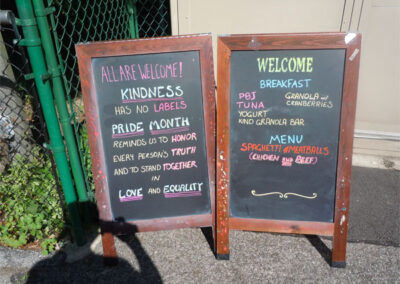 ALL ARE WELCOME!
KINDNESS
HAS NO LABELS
PRIDE MONTH
REMINDS US TO HONOR
EVERY PERSON'S TRUTH
AND TO STAND TOGETHER
IN
LOVE AND EQUALITY
WELCOME
BREAKFAST
PBJ
TUNA
YOGURT
KIND GRANOLA BAR
GRANOLA WITH
CRANBERRIES
MENU
SPAGHETTI & MEATBALLS
(CHICKEN AND BEEF)